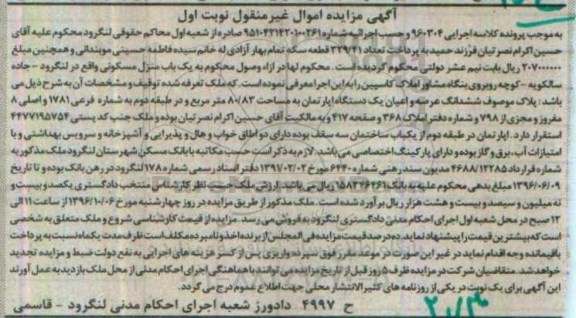 آگهی مزایده اموال غیرمنقول نوبت اول
به موجب پرونده کلاسه اجرایی ۹۶۰۳۰۴ و حسب اجرائیه شماره ۹۵۱۰۴۲۱۴۲۰۱۰۰۲۶۱ صادره از شعبه اول محاکم حقوقی لنگرود محکوم علیه آقای
حسین اکرام نصرتیان فرزند حمید به پرداخت تعداد ۳۲۹/۴۱ قطعه سکه تمام بهار آزادی له خانم سیده فاطمه حسینی موبندانی و همچنین مبلغ
۲۰۷۰۰۰۰۰۰ ریال بابت نیم عشر دولتی محکوم گردیده است. محکوم لها در ازاء وصول محکوم به یک باب منزل مسکونی واقع در لنگرود - جاده
سالکویه - کوچه روبروی بنگاه مشاور املاک کاسپین را به این اجرا معرفی نموده است. که ملک تعرفه شده توقیف و مشخصات آن به شرح ذیل می
باشد: پلاک موصوف ششدانگ عرصه و اعیان یک دستگاه آپارتمان به مساحت ۸۰/۸۳ متر مربع و در طبقه دوم به شماره فرعی ۱۷۸۱ واصلی ۸
مفروز و مجزی از ۷۹۸ و شماره دفتر املاک ۳۶۸ و صفحه ۴۱۷ و به مالکیت آقای حسین اکرام نصرتیان بوده و ملک جنب کد پستی ۴۴۷۷۱۹۵۷۵۴
استقرار دارد. آپارتمان در طبقه دوم از یکباب ساختمان سه سقف بوده دارای دو اطاق خواب و هال و پذیرایی و آشپزخانه و سرویس بهداشتی و با
امتیازات آب، برق و گاز بوده و دارای پارکینگ اختصاصی می باشد. لازم به ذکر است حسب مکاتبه با بانک مسکن شهرستان لنگرود ملک مذکور به
شماره قرارداد ۴۶۸۸/۱۲۲۸۵ مدیون سند رهنی شماره ۶۴۴۰۰ مورخ ۱۳۹۷/۰۲/۰۲ دفتر اسناد رسمی شماره ۱۷۸ لنگرود در رهن بانک بوده و تا تاریخ
۱۳۹۶/۰۶/۰۹ مبلغ بدهی محکوم علیه به بانک ۱۵۸۳۴۶۲۶۱ ریال می باشد. ارزش ملک حسب نظر کارشناس منتخب دادگستری یکصد و بیست و
نه میلیون و سیصد و بیست و هشت هزار ریال برآورد شده است. ملک مذکور از طریق مزایده در روز چهارشنبه مورخ ۱۳۹۶/۱۰/۰۶ از ساعت ۱۱ الی
۱۲ صبح در محل شعبه اول اجرای احکام مدنی دادگستری لنگرود به فروش می رسد. مزایده از قیمت کارشناسی شروع و ملک متعلق به شخصی
است که بیشترین قیمت را پیشنهاد نماید. ده درصد قیمت مزایده فی المجلس از برنده اخذ و نامبرده مکلف است ظرف مدت یکماه نسبت به پرداخت
باقیمانده وجه اقدام نماید در غیر این صورت در موعد مقرر فوق سپرده واریزی پس از کسر هزینه های اجرایی به نفع دولت ضبط و مزایده تجدید
خواهد شد. متقاضیان شرکت در مزایده ظرف ۵ روز قبل از تاریخ مزایده می توانند با هماهنگی اجرای احکام مدنی از محل ملک بازدید به عمل آورند
این آگهی برای یک نوبت در یکی از روزنامه های کثیر الانتشار محلی جهت اطلاع عموم درج می گردد.
ح ۴۹۹۷ دادورز شعبه اجرای احکام مدنی لنگرود - قاسمی